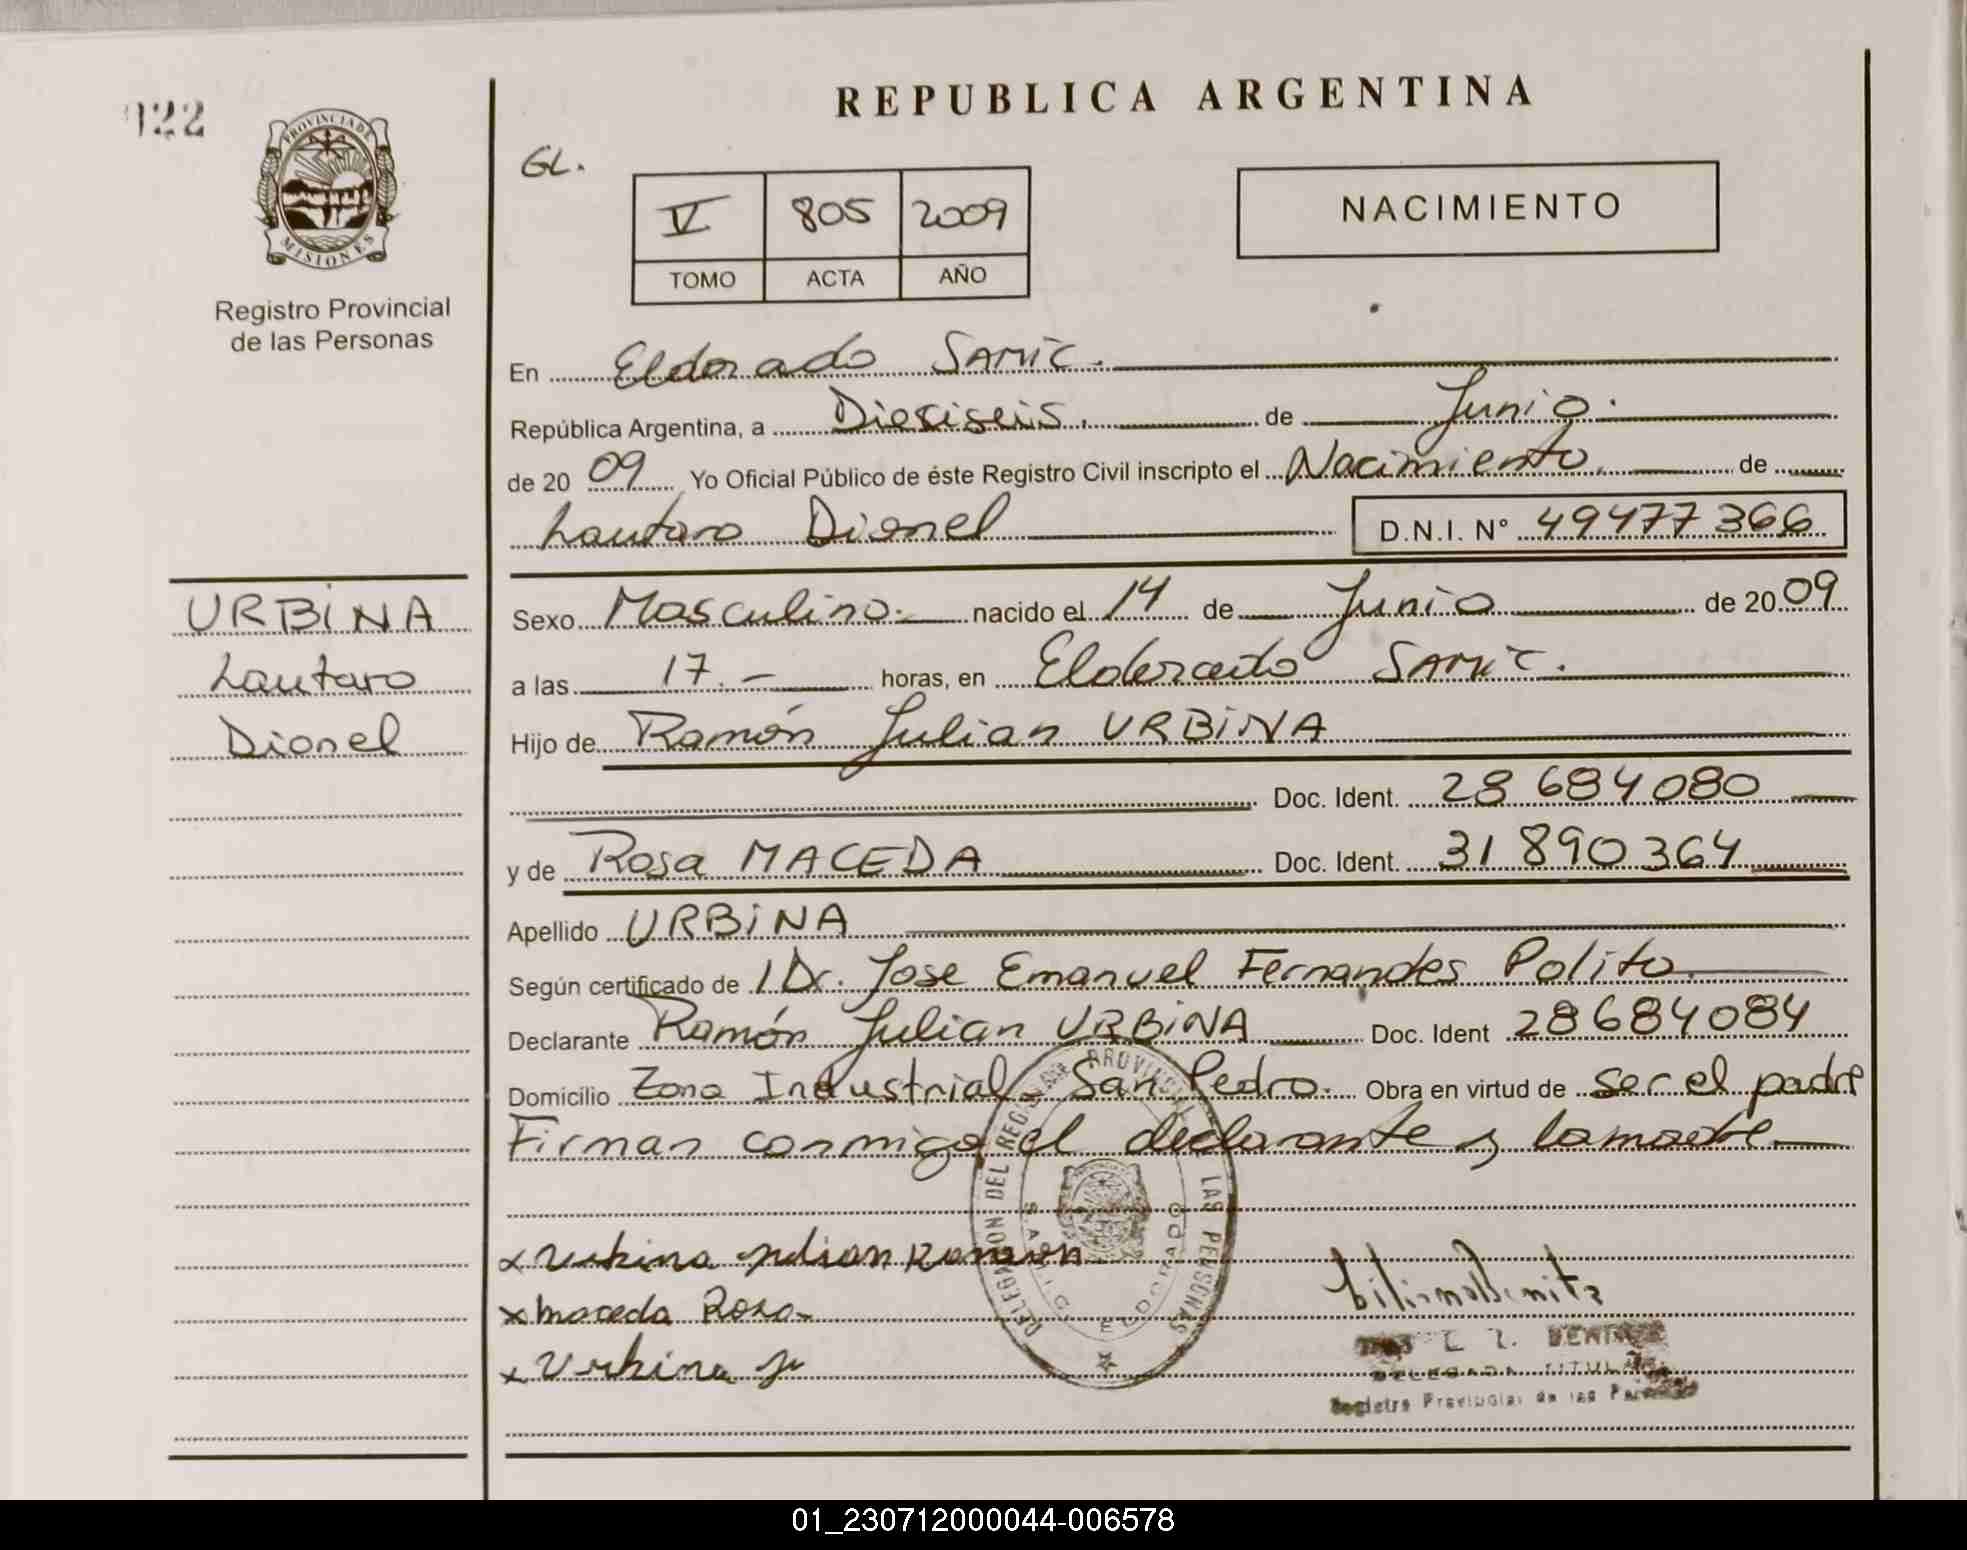 122
PROVINCIA DE
MISIONES
Registro Provincial
de las Personas
REPUBLICA ARGENTINA
GL.
V 805 2009
TOMO ACTA AÑO
NACIMIENTO
En Eldorado SAMIC.
República Argentina, a Dieciseis. de Junio.
de 20 09 Yo Oficial Público de éste Registro Civil inscripto el Nacimiento. de
Lautaro Dionel D.N.I. N° 49477366
URBINA
Lautaro
Dionel
Sexo Masculino. nacido el 14 de Junio de 20 09
a las 17.- horas, en Eldorado SAMIC.
Hijo de Ramón Julian URBINA
Doc. Ident. 28 684 080
y de Rosa MACEDA Doc. Ident. 31 890 364
Apellido URBINA
Según certificado de 1 Dr. Jose Emanuel Fernandes Polito.
Declarante Ramón Julian URBINA Doc. Ident 28684084
Domicilio Zona Industrial San Pedro. Obra en virtud de ser el padre
Firman conmigo el declarante y la madre
DELEGACION DEL REGISTRO PROVINCIAL LAS PERSONAS
S.A.M.I.C. ELDORADO
x Urbina Julian Ramon
x Maceda Rosa
x Urbina J
DELEGADA TITULAR
Registro Provincial de las Personas
01_230712000044-006578